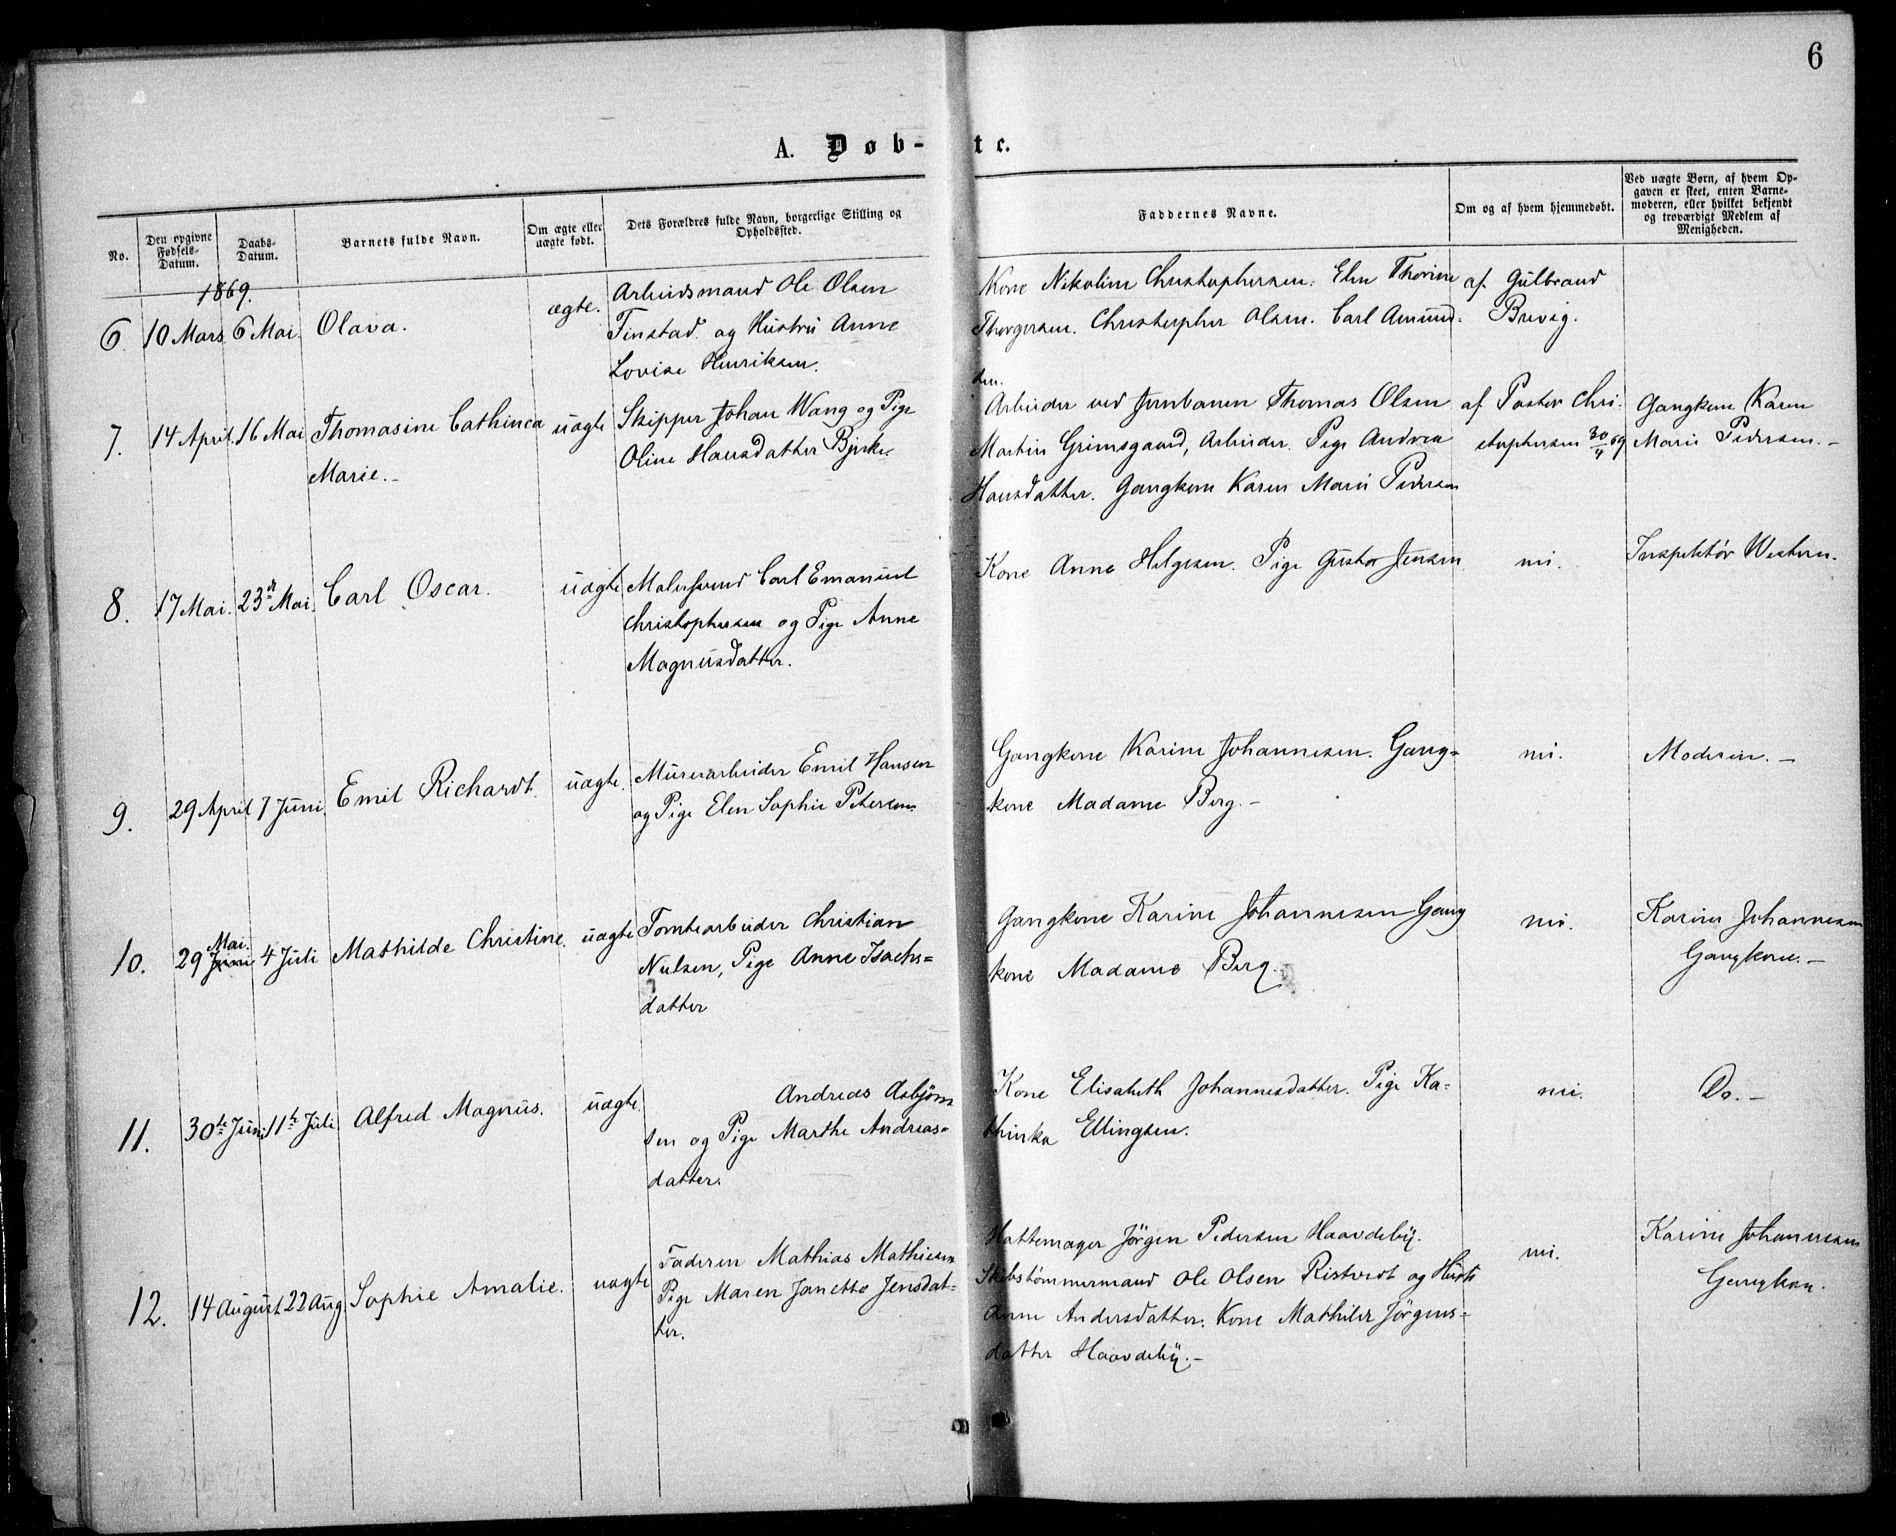 6
A. Døb-te.
No.
Den opgivne
Fødsels-
Datum.
Daabs-
Datum.
Barnets fulde Navn.
Om ægte eller
uægte født.
Dets Forældres fulde Navn, borgerlige Stilling og
Opholdssted.
Faddernes Navne.
Om og af hvem hjemmedøbt.
Ved uægte Børn, af hvem Op-
gaven er skeet, enten Barne-
moderen, eller hvilket bekjendt
og troværdigt Medlem af
Menigheden.
1869.
6. 10 Mars 6 Mai. Olava. ægte.
Arbeidsmand Ole Olsen
Finstad og Hustru Anne
Lovise Henriksen.
Kone Nikoline Christophersen. Elen Thorine
Thorgersen. Christopher Olsen. Carl Amund-
sen.
af Gulbrand
Brevig.
7. 14 April. 16 Mai Thomasine Cathinca
Marie.- uægte
Skipper Johan Wang og Pige
Oline Hansdatter Bjerke
Arbeider ved Jernbanen Thomas Olsen
Martin Grimsgaard, Arbeider. Pige Andrea
Hansdatter. Gangkone Karen Marie Pedersen
af Pastor Chri-
stophersen 30/4 69
Gangkone Karen
Marie Pedersen.-
8. 17 Mai. 23de Mai. Carl Oscar. uægte
Malersvend Carl Emanuel
Christophersen og Pige Anne
Magnusdatter.
Kone Anne Helgesen. Pige Gusta Jensen
nei.
Inspektør Western.
9. 29 April 7 Juni. Emil Richardt. uægte.
Murerarbeider Emil Hansen
og Pige Elen Sophie Petersen
Gangkone Karine Johannesen. Gang-
kone Madame Berg.-
nei.
Moderen.-
10. 29 Juni Mai. 4 Juli Mathilde Christine. uægte
Tomtearbeider Christian
Nielsen, Pige Anne Isachs-
datter
Gangkone Karine Johannesen Gang
kone Madame Berg.
nei.
Karine Johannesen
Gangkone.-
11. 30te Juni 11te Juli Alfred Magnus. uægte
Andreas Asbjørn
sen og Pige Marthe Andreas-
datter.
Kone Elisabeth Johannesdatter. Pige Ka-
thinka Ellingsen.
nei.
Do.-
12. 14 August 22 Aug. Sophie Amalie. uægte
Faderen Mathias Mathiesen
Pige Maren Janette Jensdat-
ter.
Hattemager Jørgen Pedersen Haavdeby.
Skibstømmermand Ole Olsen Ristvedt og Hustr
Anne Andersdatter. Kone Mathilde Jørgens-
datter Haavdeby.-
nei.
Karine Johannesen
Gangkon.